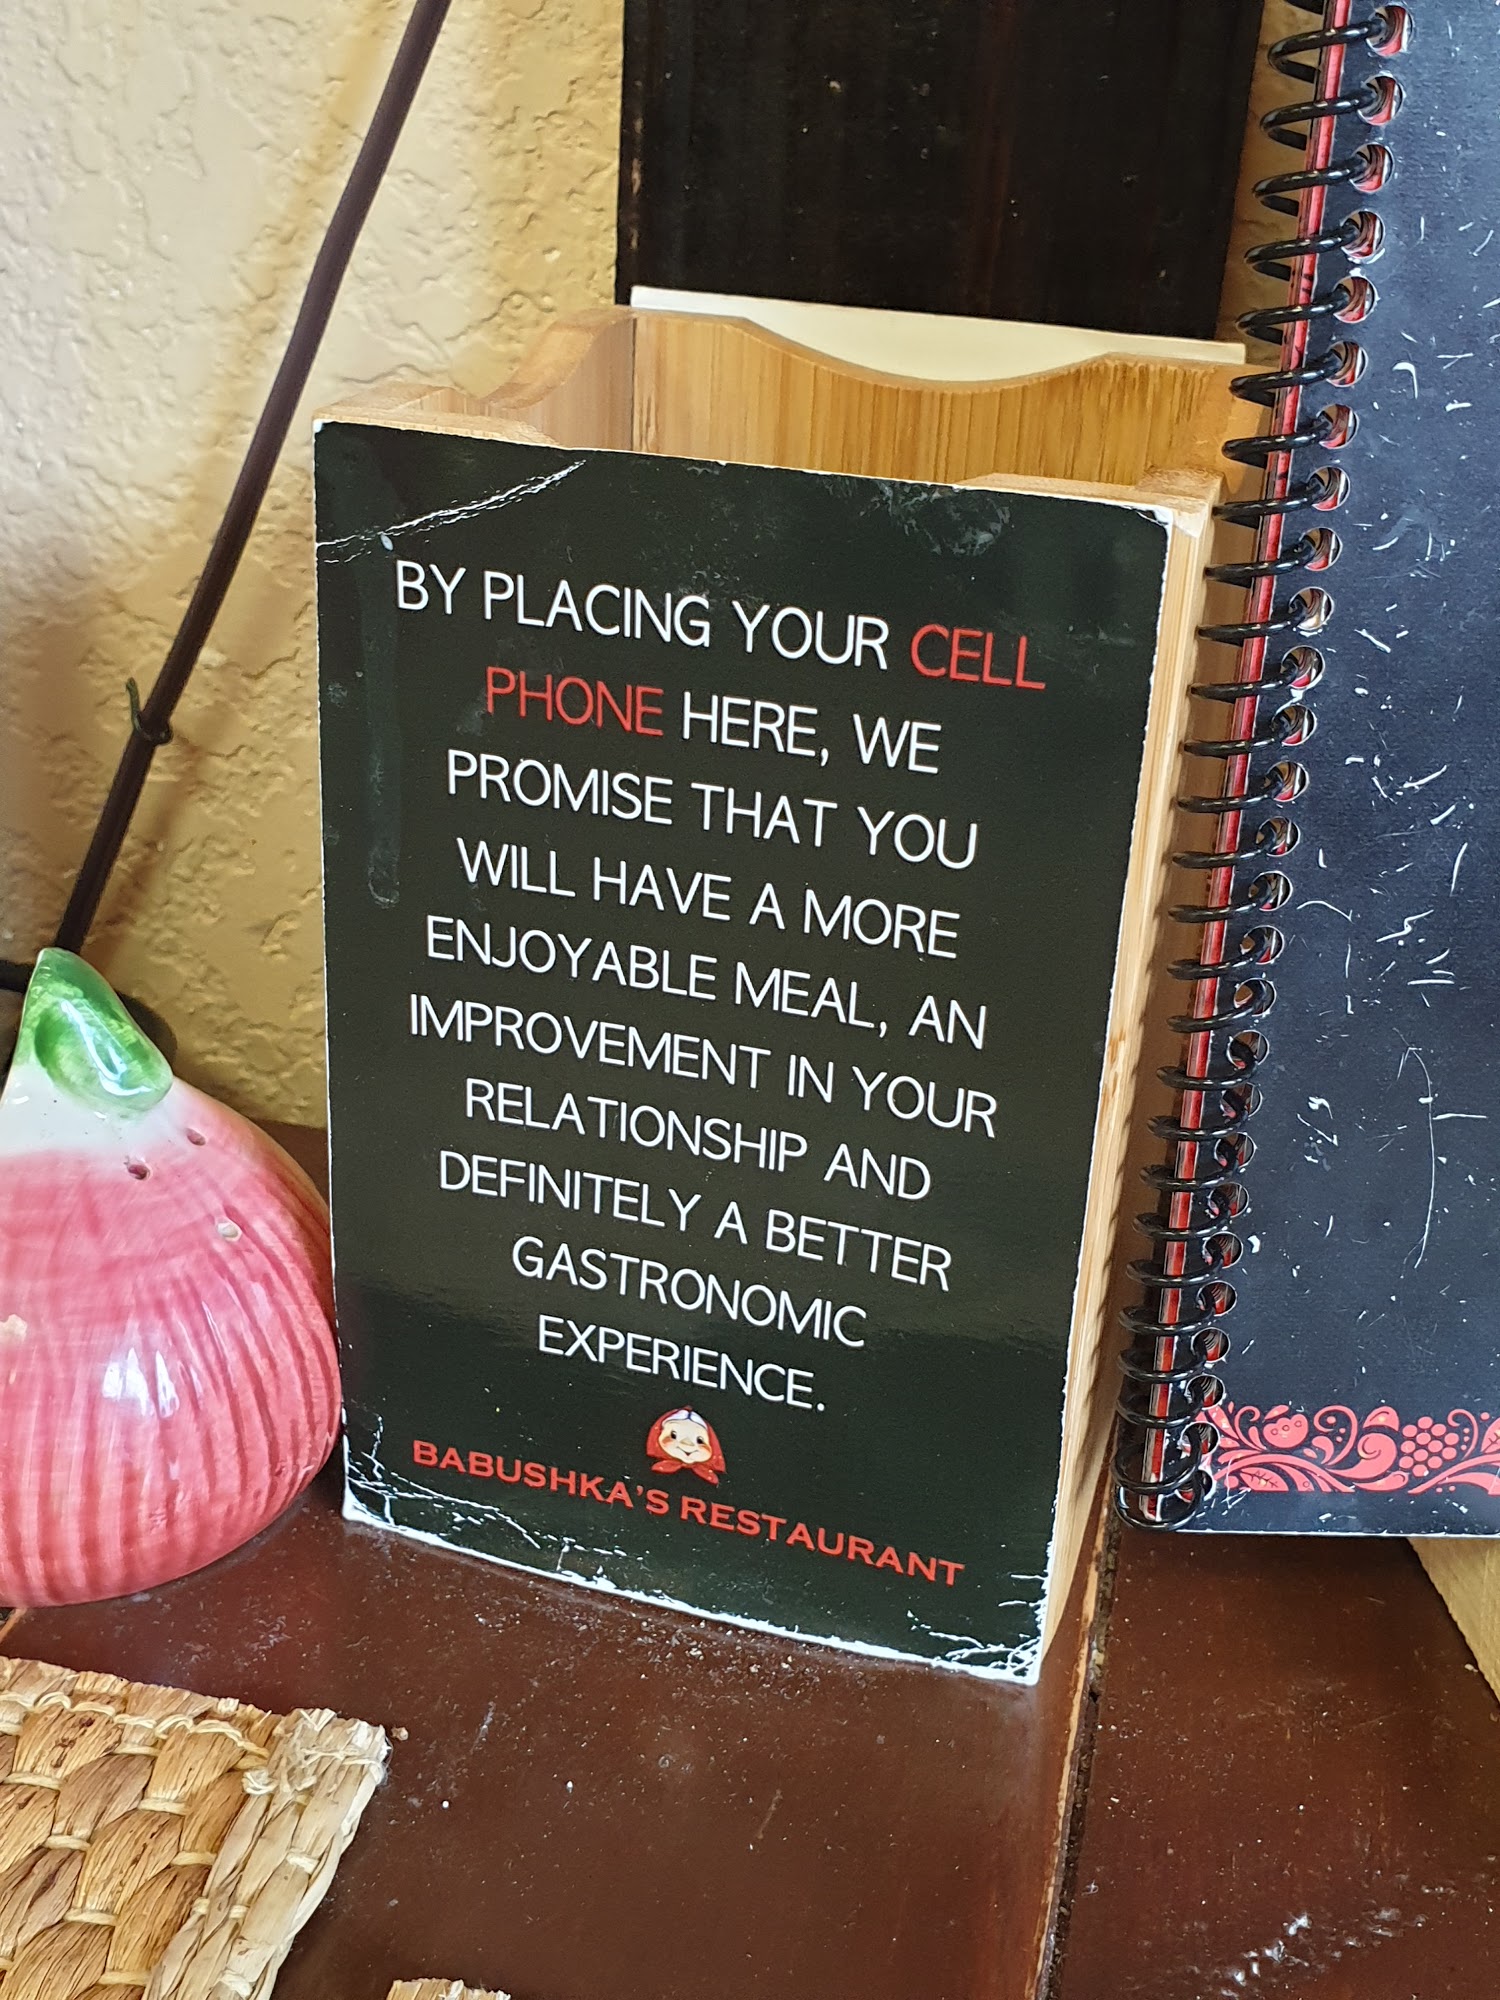 BY PLACING YOUR CELL
PHONE HERE, WE
PROMISE THAT YOU
WILL HAVE A MORE
ENJOYABLE MEAL, AN
IMPROVEMENT IN YOUR
RELATIONSHIP AND
DEFINITELY A BETTER
GASTRONOMIC
EXPERIENCE.
BABUSHKA'S RESTAURANT